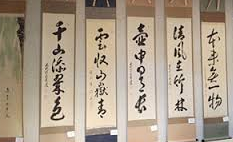 本来無一物
清風 竹林
壺中日月長
雲収山嶽青
千山添翠色